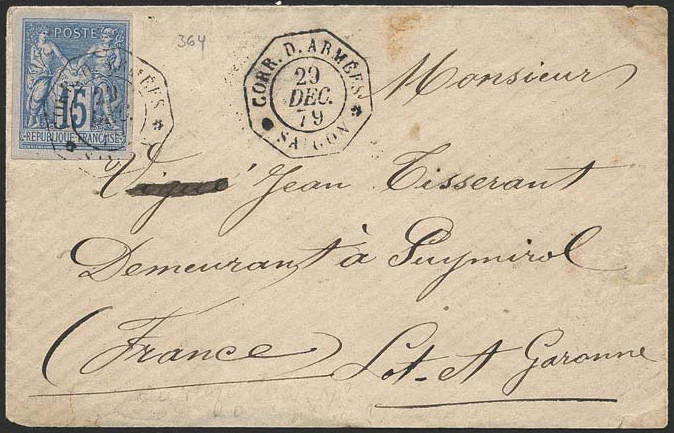 POSTE
15
REPUBLIQUE FRANÇAISE
364
CORR. D. ARMÉES
29
DEC.
79
SAIGON
Monsieur
Jean Tisserant
Demeurant à Puymirol
(France) Lot-et Garonne